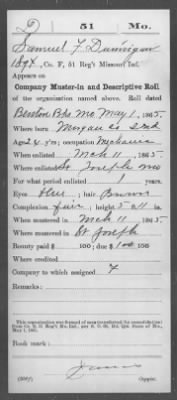 D | 51 | Mo.
Samuel F. Dunnigan
, Co. F, 51 Reg't Missouri Inf.
Appears on
Company Muster-in and Descriptive Roll
of the organization named above. Roll dated
Benton Bks Mo May 1, 1865.
Where born Morgan Co Ind
Age 24 y'rs; occupation Mechanic
When enlisted Mch 11, 1865
Where enlisted St Joseph Mo
For what period enlisted 1 years.
Eyes blue; hair Brown
Complexion fair; height 5 ft. 11 in.
When mustered in Mch 11, 1865
Where mustered in St Joseph
Bounty paid $ 100; due $ 100
Where credited
Company to which assigned F
Remarks:
Book mark:
(339f) Copyist.